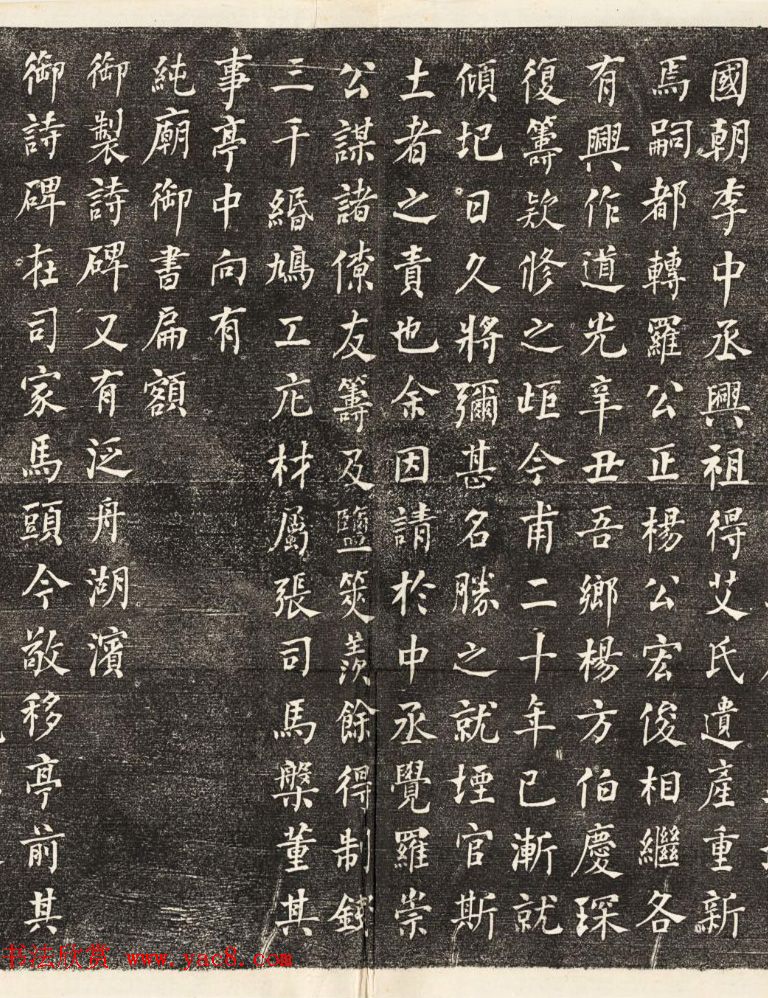 國朝李中丞興祖得艾氏遺產重新
焉嗣都轉羅公正楊公宏俊相繼各
有興作道光辛丑吾鄉楊方伯慶琛
復籌欵修之岠今甫二十年已漸就
傾圯日久將彌甚名勝之就堙官斯
土者之責也余因請於中丞覺羅崇
公謀諸僚友籌及鹽筴羨餘得制錢
三千緡鳩工庀材屬張司馬槃董其
事亭中向有
純廟御書扁額
御製詩碑又有泛舟湖濱
御詩碑在司家馬頭今敬移亭前其
书法欣赏 www.yac8.com